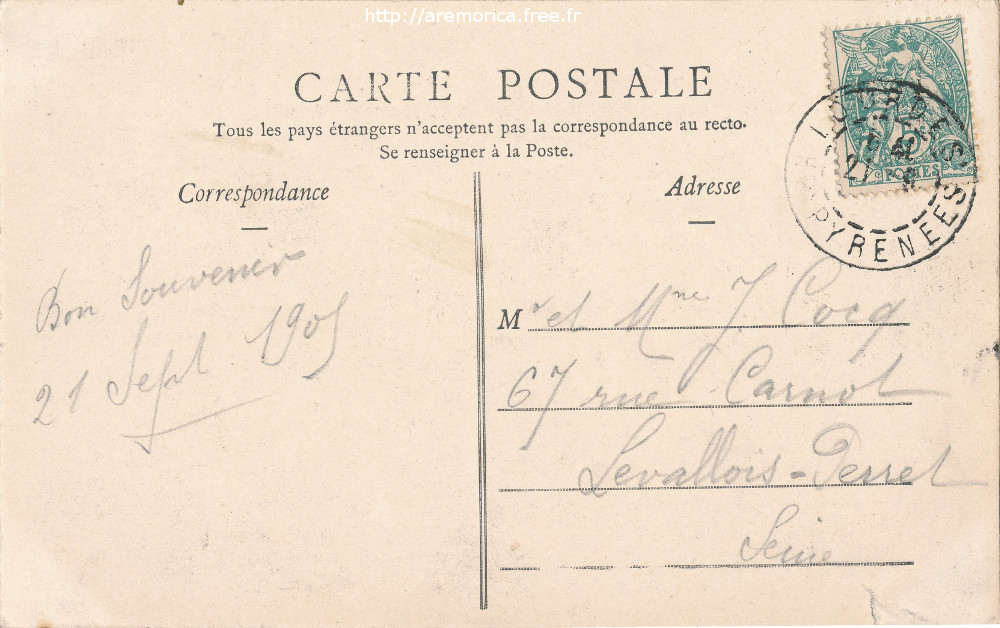 http://aremorica.free.fr
CARTE POSTALE
Tous les pays étrangers n'acceptent pas la correspondance au recto.
Se renseigner à la Poste.
Correspondance
Adresse
LOURDES
21
PYRENEES
POSTES
Bon Souvenir
21 Sept. 1905
Mr et Mme J. Cocq
67 rue Carnot
Levallois-Perret
Seine